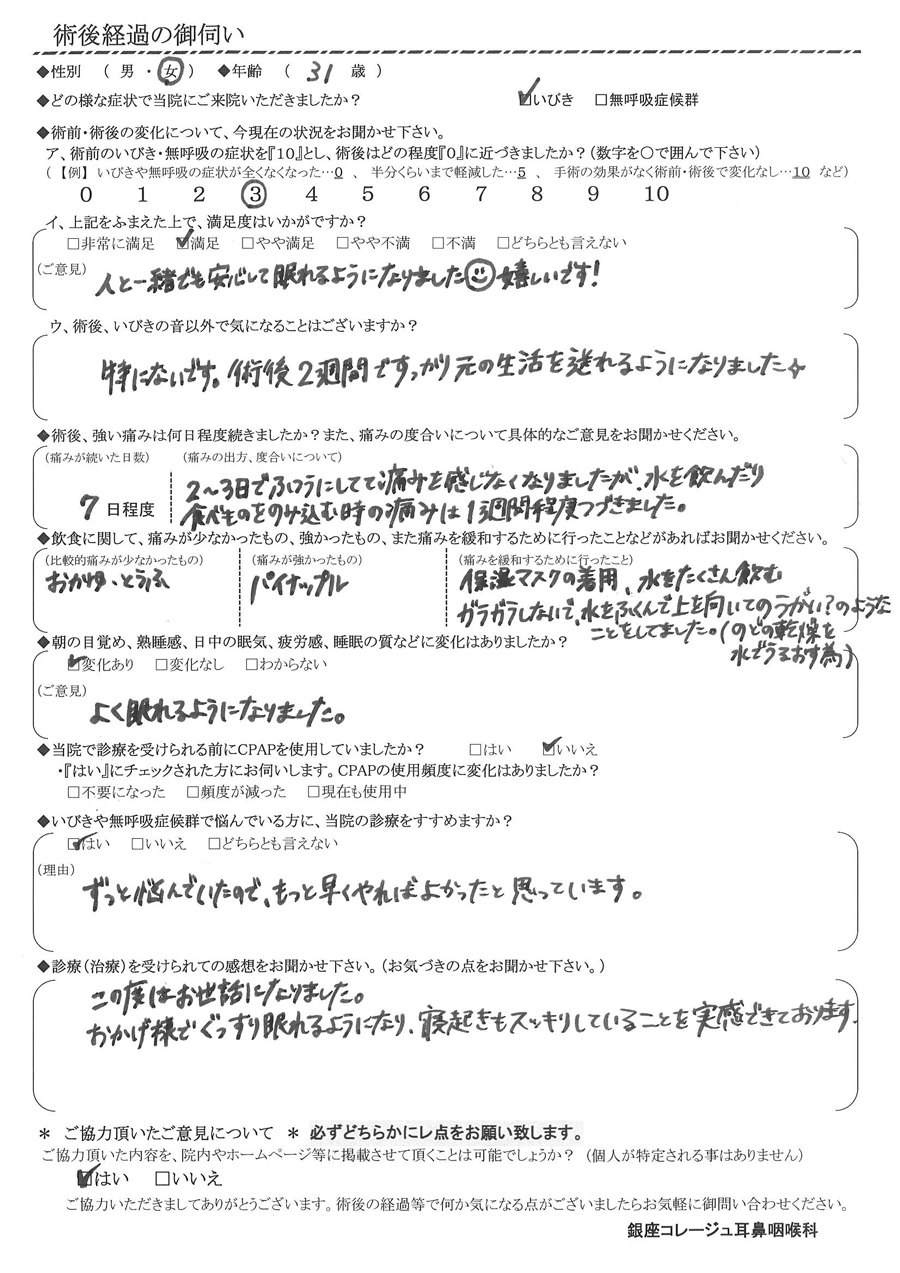 術後経過の御伺い
◆性別 ( 男 ・ 女 ) ◆年齢 ( 31 歳 )
◆どの様な症状で当院にご来院いただきましたか? ☑いびき □無呼吸症候群
◆術前・術後の変化について、今現在の状況をお聞かせ下さい。
ア、術前のいびき・無呼吸の症状を『10』とし、術後はどの程度『0』に近づきましたか?(数字を〇で囲んで下さい)
(【例】 いびきや無呼吸の症状が全くなくなった…0 、 半分くらいまで軽減した…5 、 手術の効果がなく術前・術後で変化なし…10 など)
0 1 2 3 4 5 6 7 8 9 10
イ、上記をふまえた上で、満足度はいかがですか?
□非常に満足 ☑満足 □やや満足 □やや不満 □不満 □どちらとも言えない
(ご意見)
人と一緒でも安心して眠れるようになりました☺嬉しいです!
ウ、術後、いびきの音以外で気になることはございますか?
特にないです。術後2週間ですっかり元の生活を送れるようになりました✧
◆術後、強い痛みは何日程度続きましたか?また、痛みの度合いについて具体的なご意見をお聞かせください。
(痛みが続いた日数) (痛みの出方、度合いについて)
7 日程度
2〜3日でふつうにしてて痛みを感じなくなりましたが、水を飲んだり
食べものをのみ込む時の痛みは1週間程度つづきました。
◆飲食に関して、痛みが少なかったもの、強かったもの、また痛みを緩和するために行ったことなどがあればお聞かせください。
(比較的痛みが少なかったもの) (痛みが強かったもの) (痛みを緩和するために行ったこと)
おかゆ、とうふ パイナップル 保湿マスクの着用、水をたくさん飲む
ガラガラしないで、水をふくんで上を向いてのうがい?のような
ことをしてました。(のどの乾燥を
水でうるおす為)
◆朝の目覚め、熟睡感、日中の眠気、疲労感、睡眠の質などに変化はありましたか?
☑変化あり □変化なし □わからない
(ご意見)
よく眠れるようになりました。
◆当院で診療を受けられる前にCPAPを使用していましたか? □はい ☑いいえ
・『はい』にチェックされた方にお伺いします。CPAPの使用頻度に変化はありましたか?
□不要になった □頻度が減った □現在も使用中
◆いびきや無呼吸症候群で悩んでいる方に、当院の診療をすすめますか?
☑はい □いいえ □どちらとも言えない
(理由)
ずっと悩んでいたので、もっと早くやればよかったと思っています。
◆診療(治療)を受けられての感想をお聞かせ下さい。(お気づきの点をお聞かせ下さい。)
この度はお世話になりました。
おかげ様でぐっすり眠れるようになり、寝起きもスッキリしていることを実感できております。
＊ ご協力頂いたご意見について ＊ 必ずどちらかにレ点をお願い致します。
ご協力頂いた内容を、院内やホームページ等に掲載させて頂くことは可能でしょうか? (個人が特定される事はありません)
☑はい □いいえ
ご協力いただきましてありがとうございます。術後の経過等で何か気になる点がございましたらお気軽に御問い合わせください。
銀座コレージュ耳鼻咽喉科